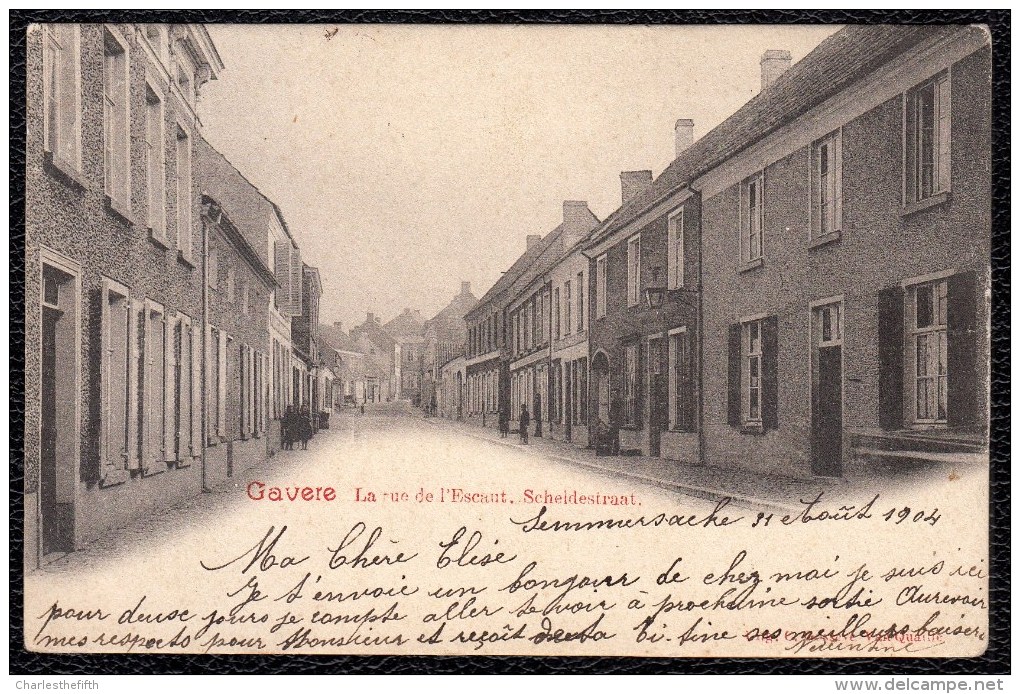 Gavere La rue de l'Escaut. Scheldestraat.
Semmersache 31 Août 1904
Ma Chère Elise
Je t'envoie un bongour de chez mai je suis ici
pour deuse jours je compte aller te voir à prochaine sortie Aurevoir
mes respects pour Monsieur et reçoit de ta ses meilleurs baisers
Charlesthefifth
delcampe.net